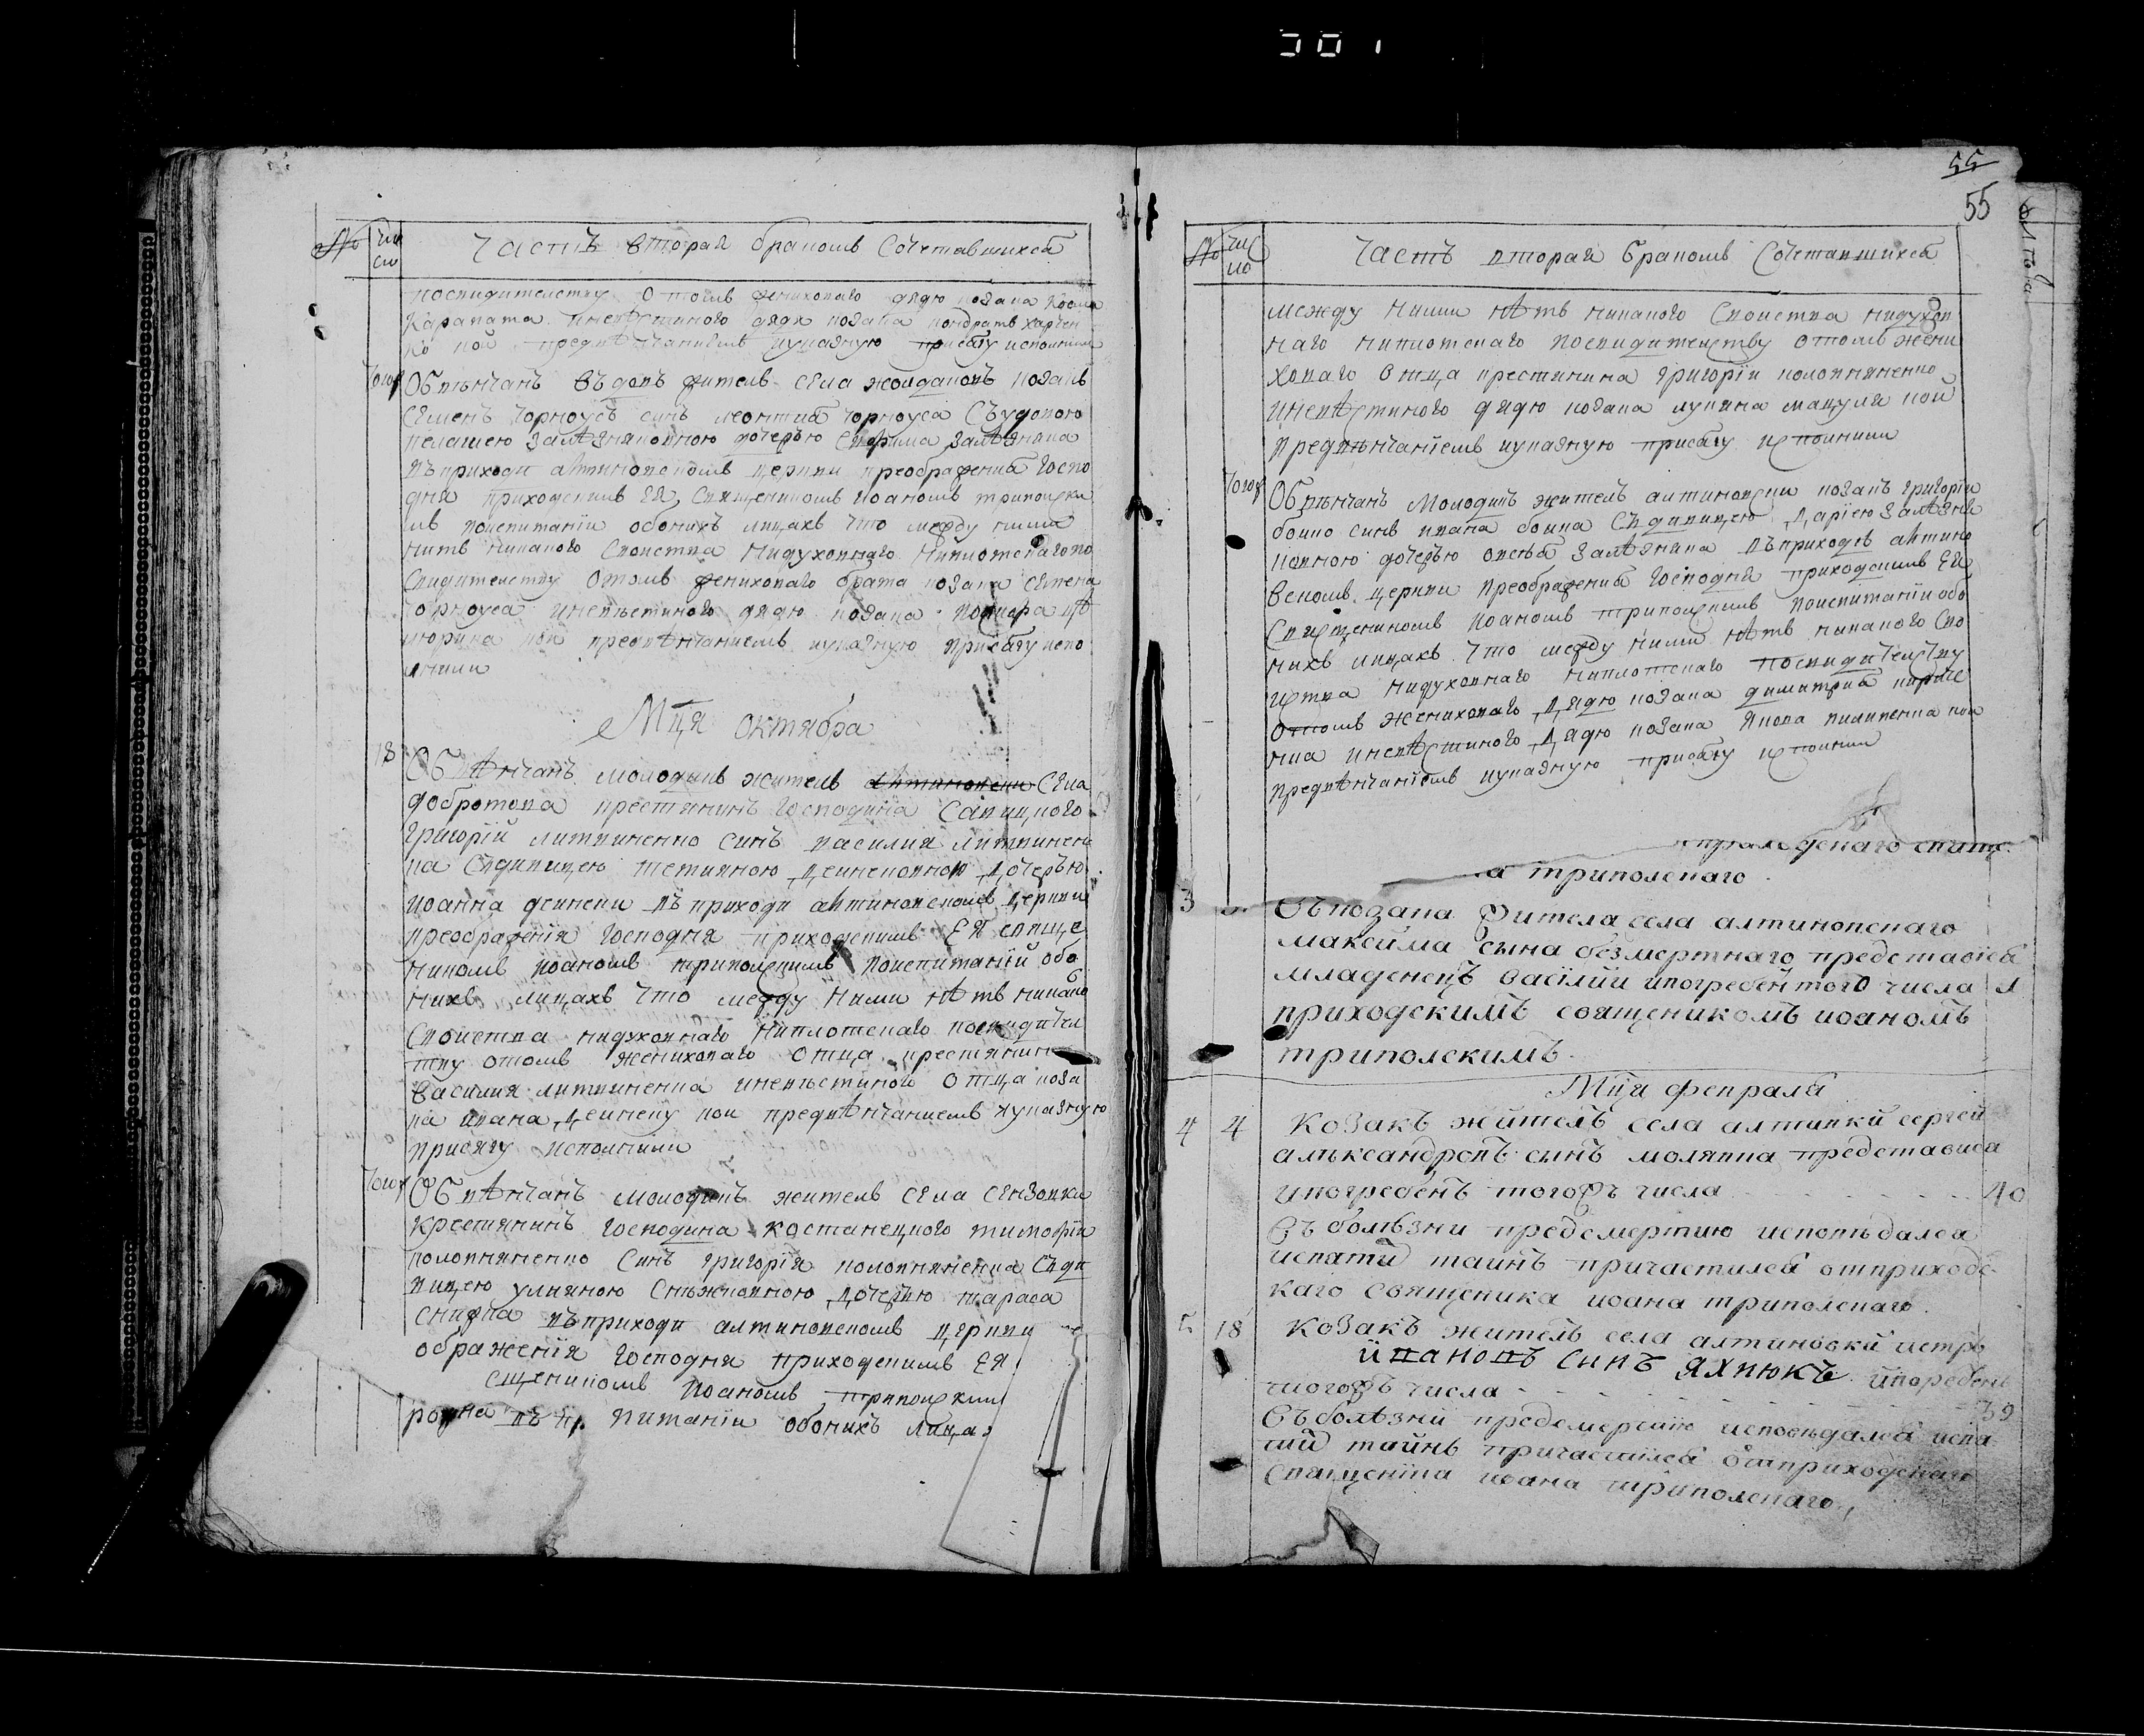 № чи сло Часть вторая браковъ Сочетавшихся
посвидителству Отомъ жениховаго дядю козака Космы
Каравата иневѣстиного дядя козака кондратъ харчен
ко кои предвѣнчаниемъ купаѣную присягу исполнили
тогож Обвѣнчанъ въдовъ житель села жолдаковъ козакъ
Семенъ Чорноусъ синъ леонтия чорноуса Съудовою
пелагиею залѣзняковною дочерью Єврома залѣзняка
въприходи алтиновскомъ церкви преображения Госпо
дня приходскимъ Ея Священикомъ Иоаномъ триполски
мъ повиспитании обоихъ лицахъ что между ними
нитъ никакого Своиства нидуховнаго ниплотскагопо
Свидителству Отомъ жениховаго брата козака Семена
Чорноуса иневѣстиного дядю козака
кои предвѣнчаниемъ купаѣную присягу испо
лнили
Мця октября
18 Обвѣнчанъ молодикъ житель алтиновки Села
добротова крестянинъ Господина
Григорій литвиненко синъ василия литвинен
ка Сьдивицею тетияною дейнековною дочерью
Иоанна дейнеки въ приходи алтиновскомъ церкви
преображения Господня приходскимъ Ея свяще
никомъ Иоаномъ триполскимъ повиспитаний обо
ихъ лицахъ что между ними нѣтъ никако
Своиства нидуховнаго ниплотскаго посвидител
тву отомъ жениховаго отца крестянин
василия литвиненка иневѣстиного отца коза
ка ивана дейнеку кои предвѣнчаниемъ купаѣную
присягу исполнили
тогож Обвѣнчанъ молодикъ житель села Сензовки
крестянинъ Господина костанецкого тимофій
коловняненко Синъ григорія коловняненка Сьди
вицею улияною Снѣжковною дочерью тараса
Снижка въприходи алтиновскомъ церкви
ображенія Господня приходскимъ Ея
сщеникомъ Иоаномъ триполским
питании обоихъ лица
55
55
№ чи сло Часть вторая браковъ Сочетавшихся
между ними нѣтъ никакого Своиства нидухов
наго ниплотскаго посвидителству отомъ жени
ховаго Отца крестянина григорія коловняненко
иневѣстиного дядю козака лукяна мацуля кои
предвѣнчаніемъ купаѣную присягу исполнили
тогож Обвѣнчанъ Молодикъ житель алтиновки козакъ григорій
бойко синъ ивана бойка Сьдивицею Даріею залѣзня
ковною дочерью залѣзняка въприходѣ алтино
вскомъ церкви преображения Господня приходскимъ Ея
Священикомъ Иоаномъ триполскимъ повиспитаніи обо
ихъ лицахъ что между ними нѣтъ никакого Сво
иства нидуховнаго ниплотскаго посвидителству
Отомъ жениховаго дядю козака димитрия кирие
нка иневѣстиного дядю козака якова пилипенка кои
предвѣнчаніемъ купаѣную присягу исполнили
а триполскаго
3 Съкозака жителя села алтиновскаго
максима сына безмертнаго представися
младенецъ василій ипогребен того числа
приходскимъ священикомъ иоаномъ
триполскимъ
Мця февраля
4 4 Козакъ житель села алтинки сергей
александровъ сынъ молявка представися
ипогребенъ тогожъ числа 40
Въ болѣзни предсмертию исповѣдался
исвятий таинъ причастился отприходс
каго священика иоана триполскаго
5 18 Козакъ житель села алтиновки петро
ивановъ синъ яхнюкъ ипогребенъ
тогожъ числа 39
Въболѣзни предсмертию исповѣдался исвя
тий тайнъ причастился отприходскаго
Священика иоана триполскаго